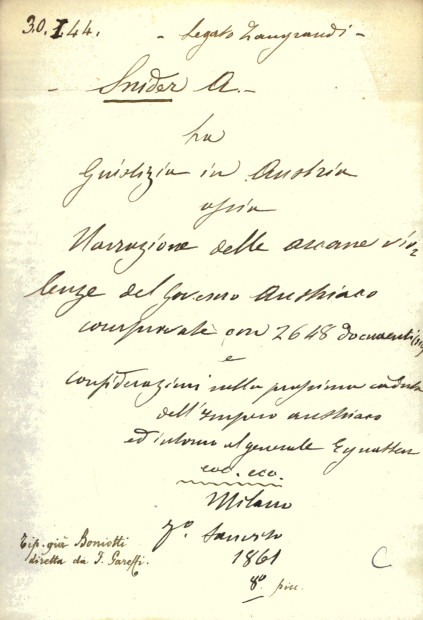 30.I.44. - Legato Zangrandi -
- Snider A. -
La
Giustizia in Austria
ossia
Narrazione delle arcane vio=
lenze del Governo Austriaco
comprovate con 2648 documenti
e
considerazioni sulla prossima caduta
dell'Impero austriaco
ed intorno al generale Eynatten
ecc. ecc.
Milano
F.co Sanvito
1861
8° picc.
Tip. già Boniotti
diretta da F. Gareffi.
C